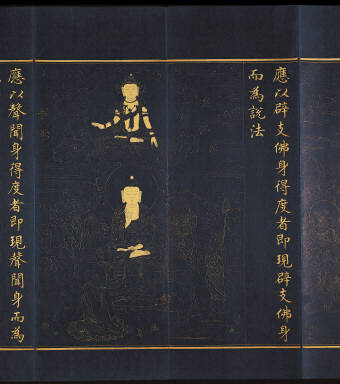 應以辟支佛身得度者即現辟支佛身
而為說法
應以聲聞身得度者即現聲聞身而為